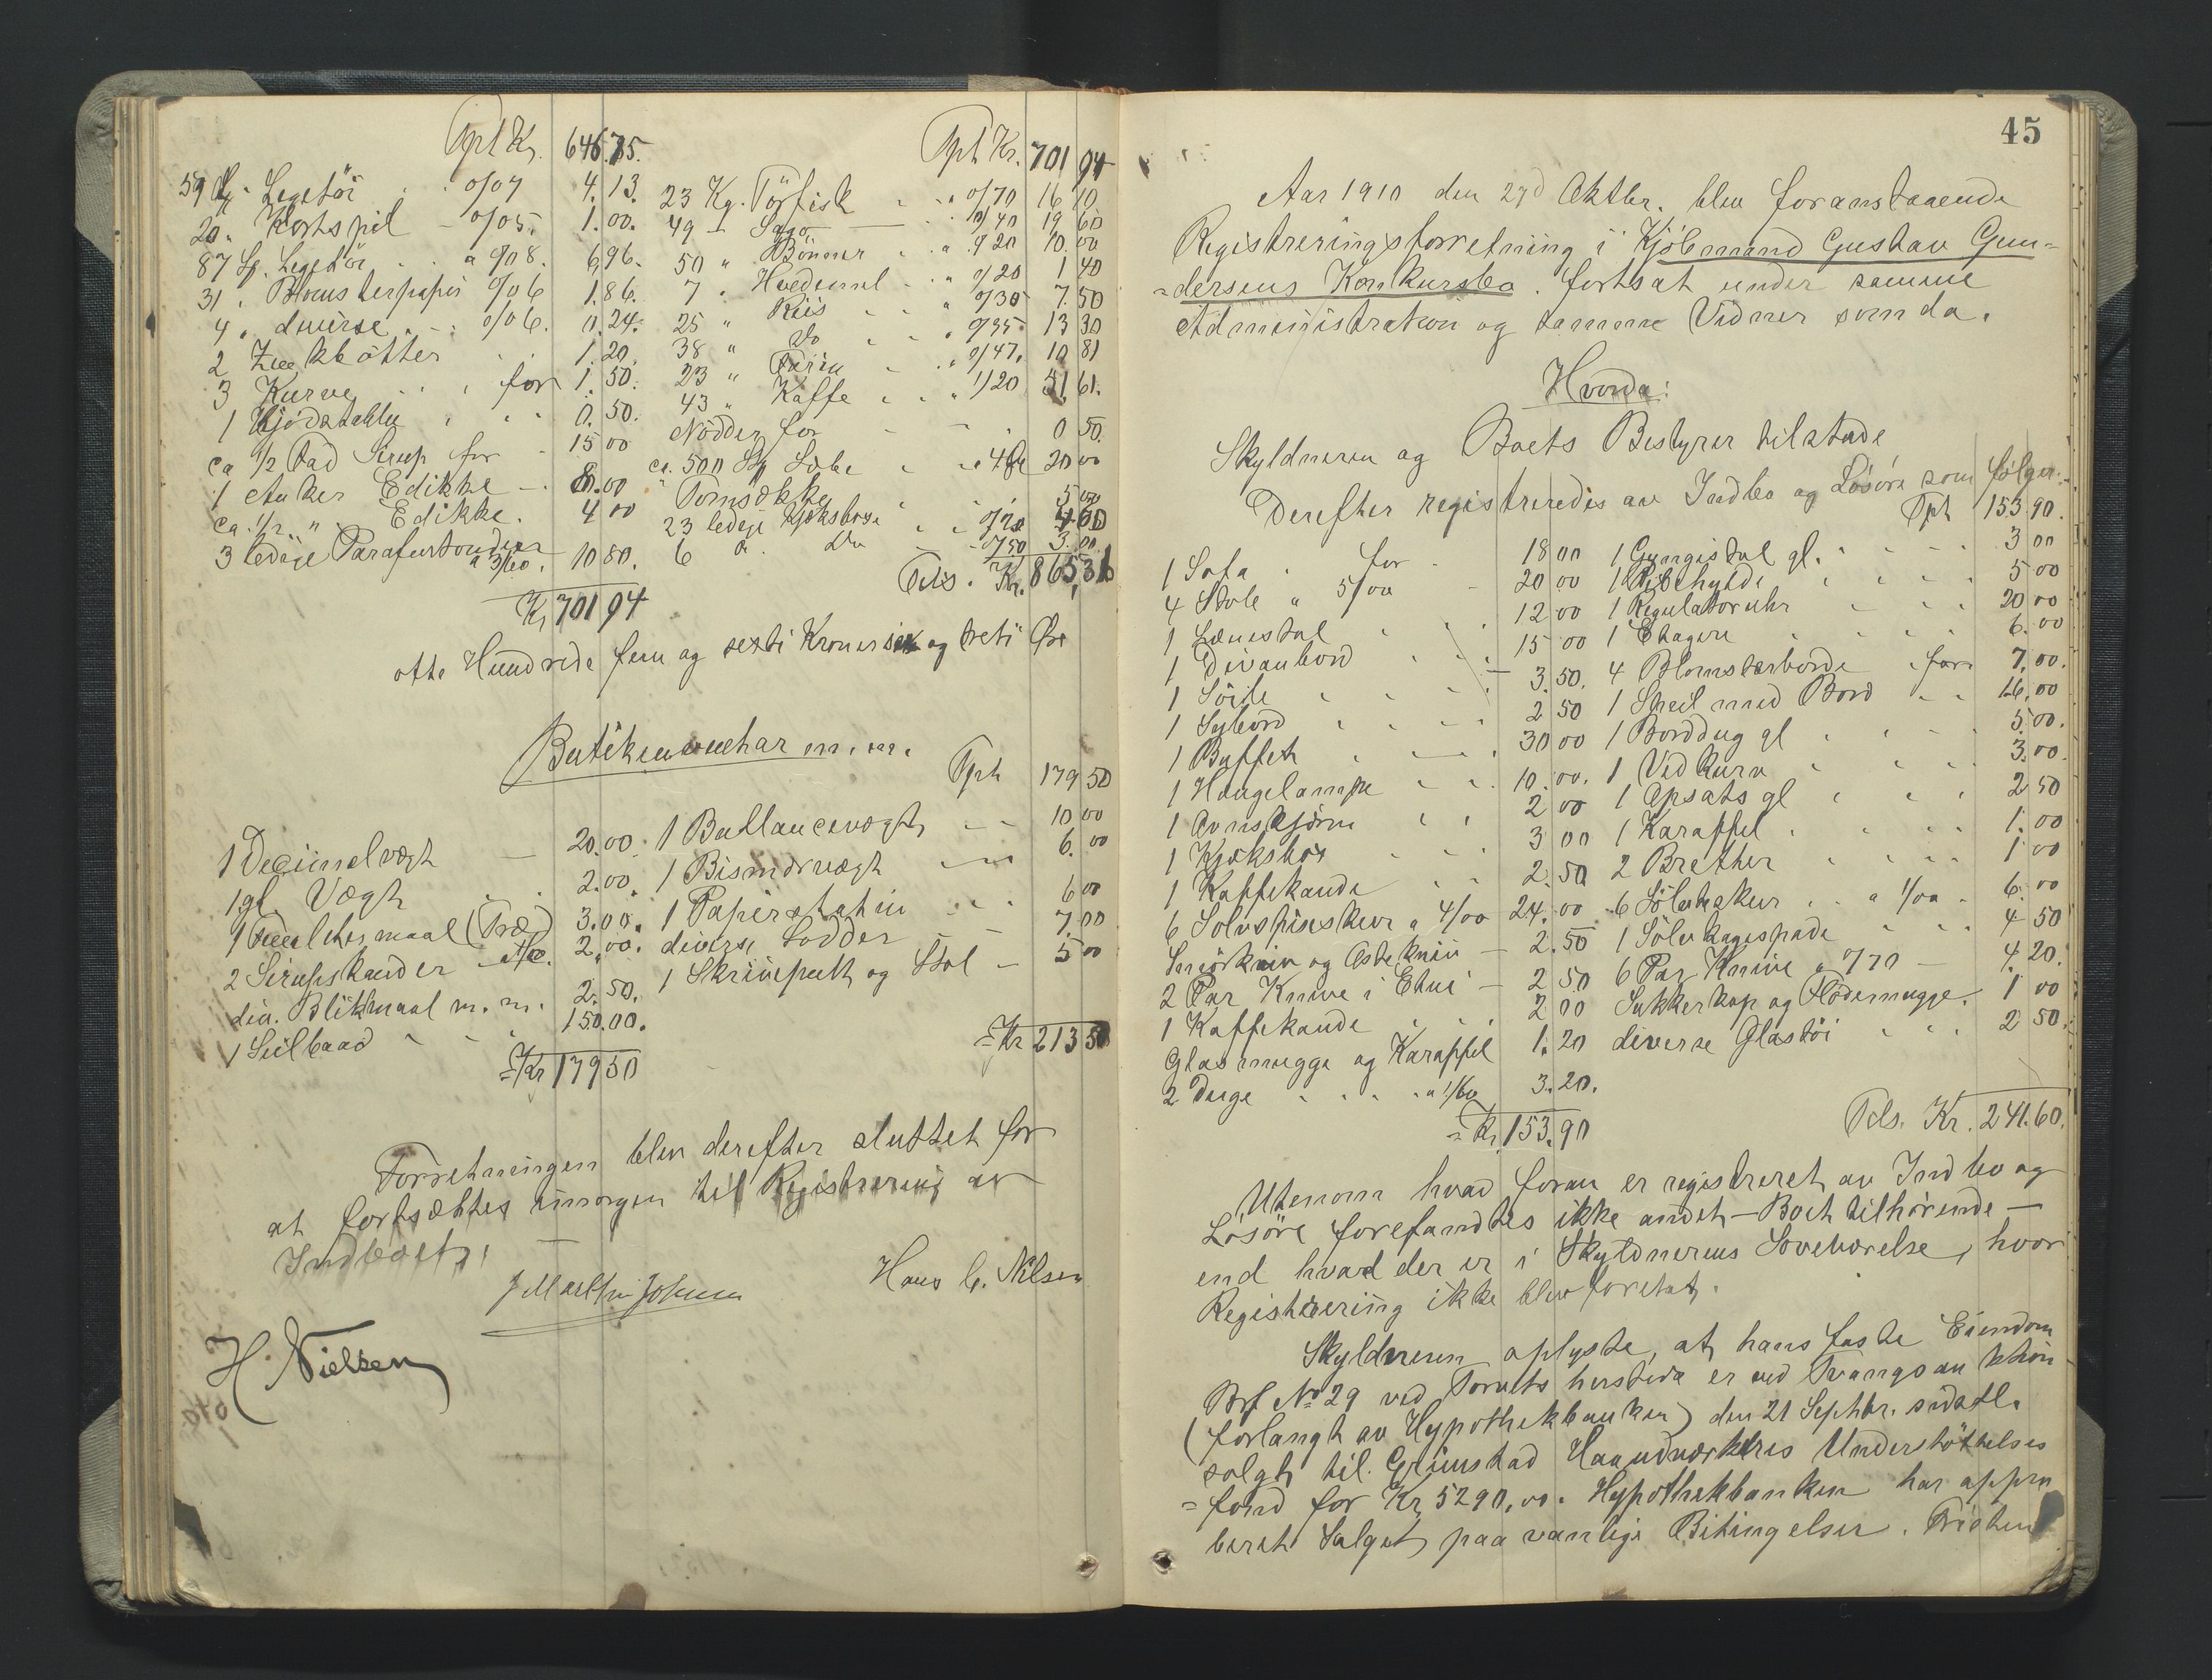 Tpt Kr. 646.75.
59 Lg. Legetöi " 0/07 4.13.
20 " Kortspil - 0/05. 1.00.
87 Lg. Legetöi " a 0/08. 6.96.
31 " Blomsterpapir 0/06 1.86.
4 " diverse " - 0/06. 0.24.
2 Zinkbötter 1.20.
3 Kurve " " for 1.50.
1 Kjödstabbe " " 0.50.
ca 1/2 Fad Sirup for - 15 00
1 Anker Edikke - 8.00
ca. 1/2 " Edikke. 4 00
3 ledige Parafintönder a 3/60. 10 80.
Kr 701 94
Tpt Kr. 701 94
23 Kg. Törfisk " " a 0/70 16 10
49 " Sago 0/40 19 60
50 " Bönner " a 0/20 10.00
7 " Hvedemel " 0/20 1 40
25 " Riis " " 0/30 7.50
38 " do " 0/35 13 30
23 " Farin " 0/47. 10 81
43 " Kaffe " " 1/20 51 61.
Nödder for - - 0 50.
ca. 500 Lg Sæbe " a 4 Øre 20 00
" Tomsække " 5 00
23 ledige Kjæksbokse " 0/20 4 60
6 a. Do - - 0/50 3.00
Tils. Kr. 865,36
otte Hundrede fem og sexti Kroner sex og treti Øre
Butikinventar m. m.
Tpt 179 50
1 Decimalvægt - 20.00
1 gl Vægt " 2.00.
1 maal (Træ) 3.00.
2 Sirupskander - a 1/00. 2.00.
div. Blikmaal m. m. 2.50.
1 Seilbaad " " 150.00.
= Kr 179 50
1 Ballancevægt - - 10 00
1 Bismervægt 6.00
1 Papirstativ " " 6 00
diverse Lodder - 7.00
1 Skrivepult og Stol - 5 00
= Kr 213 50
Forretningen blev derefter sluttet for
at fortsættes imorgen til Registrering av
Indboet.
Hans C. Nilsen
H Nielsen
45
Aar 1910 den 27d Oktbr. blev foranstaaende
Registreringsforretning i Kjöbmand Gustav Gun=
=dersens Konkursbo. fortsat under samme
Administration og samme Vidner som da.
Hvorda:
Skyldneren og Boets Bestyrer tilstede
Derefter registreredes av Indbo og Lösöre som fölger:
1 Sofa . for - 18 00
4 Stole " 5/00 - 20 00
1 Lænestol " " 12 00
1 Divanbord " " 15 00
1 Söile " " " 3.50.
1 Sybord " " " 2 50
1 Buffet " " 30 00
1 Hængelampe " " 10.00.
1 Ovnskjærm " " 2 00
1 Kjæksbox " " 3 00
1 Kaffekande " " 2.50
6 Sölvspiseskeer a 4/00 24.00
Smörkniv og Ostekniv - 2.50
2 Par Knive i Etui - 2 50
1 Kaffekande " " 2 00
Glasmugge og Karaffel 1.20
2 Duge " " " a 1/60 3.20.
= Kr. 153.90
Tpt 153 90.
1 Gyngestol gl. " - - 3 00
1 Boghylde " " " 5 00
1 Regulatoruhr " " 20 00
1 Etagere " " " 6.00
4 Blomsterborde " for 7.00.
1 Speil med Bord " " 16.00
1 Borddug gl " " 5.00.
1 Vedkurv " " " 3.00.
1 Opsats gl " " " 2 50
1 Karaffel " " " 1.00
2 Bretter " " " 1 00
6 Sölvtheskeer " " a 1/00 - 6.00
1 Sölvkagespade " " " 4 50
6 Par Knive a 0/70 - 4.20.
Sukkerkop og Flödemugge. 1 00
diverse Glastöi " " " 2 50.
Tils. Kr. 241.60.
Utenom hvad foran er registreret av Indbo og
Lösöre forefandtes ikke andet - Boet tilhörende -
end hvad der er i Skyldnerens Soveværelse, hvor
Registrering ikke blev foretat.
Skyldneren oplyste, at hans faste Eiendom
Brf No 29 ved Torvets herstede er ved Tvangsauktion
(forlangt av Hypothekbanken) den 21 Septbr. sidstl.
solgt til Grimstad Haandværkeres Understöttelses
=fond for Kr 5290,00. Hypothekbanken har appro
beret Salget paa vanlige Betingelser. Fristen